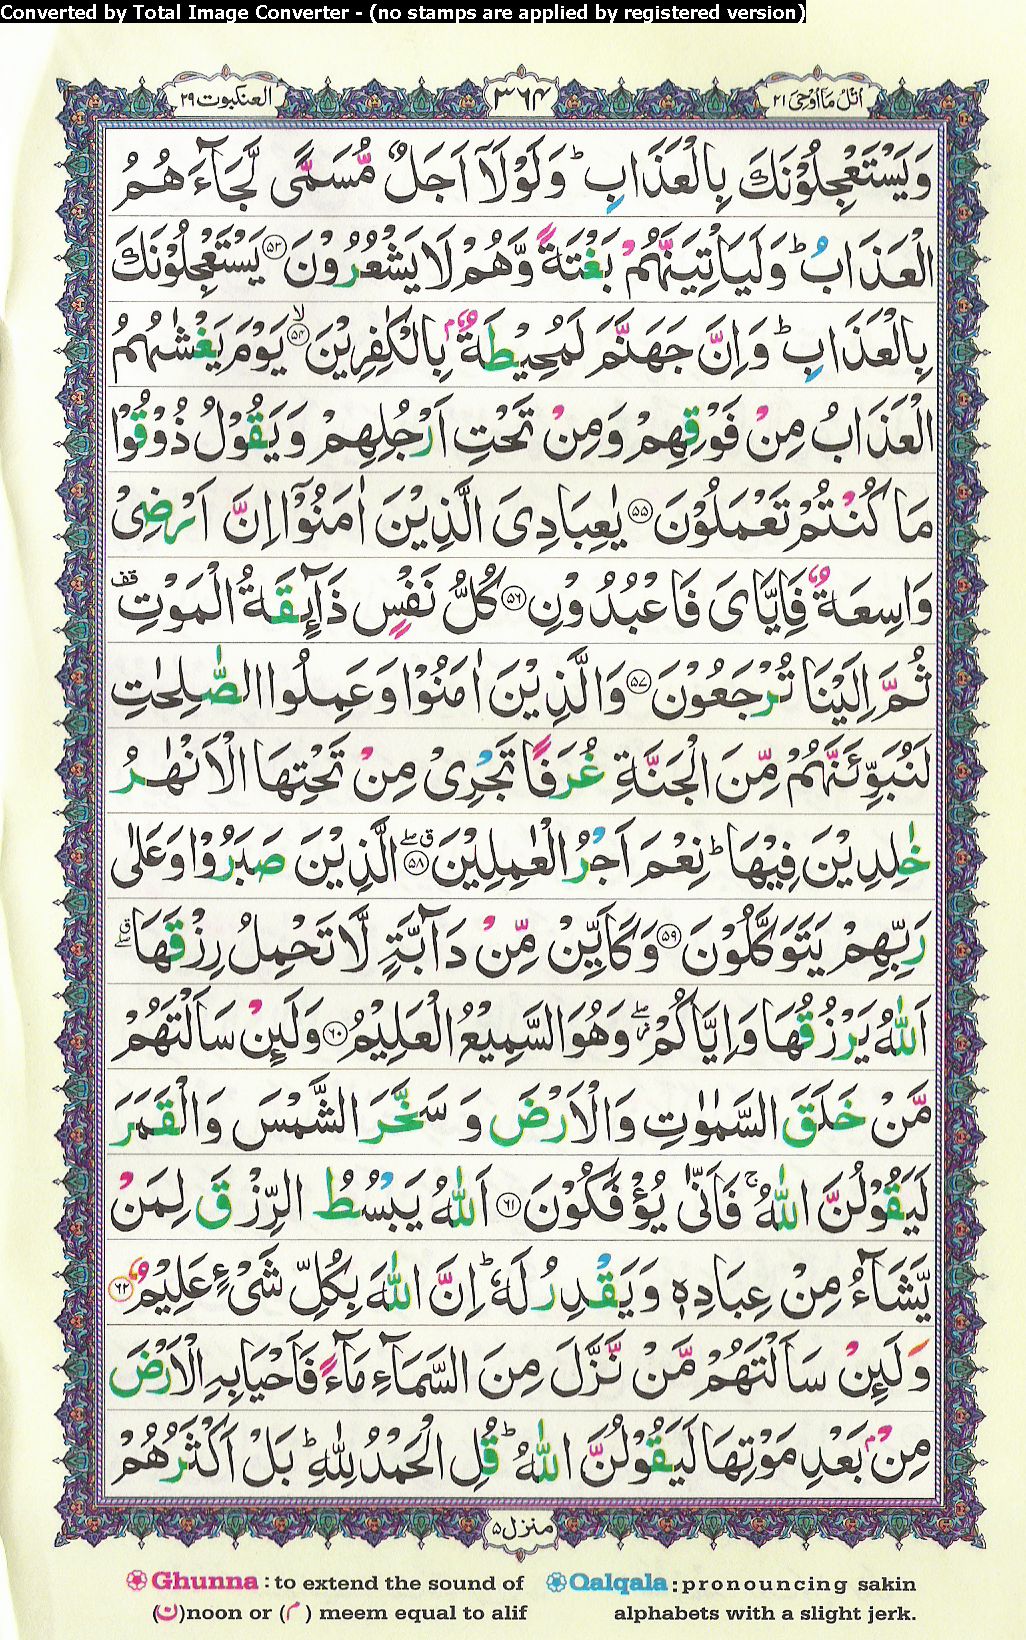 Converted by Total Image Converter - (no stamps are applied by registered version)
العنكبوت ٢٩
٣٦٤
اتل ما اوحی ٢١
وَيَسْتَعْجِلُوْنَكَ بِالْعَذَابِ ؕ وَلَوْلَاۤ اَجَلٌ مُّسَمًّى لَّجَآءَهُمُ
الْعَذَابُ ؕ وَلَيَاْتِيَنَّهُمْ بَغْتَةً وَّهُمْ لَا يَشْعُرُوْنَ ۝۵۳ يَسْتَعْجِلُوْنَكَ
بِالْعَذَابِ ؕ وَاِنَّ جَهَنَّمَ لَمُحِيْطَةٌۢ بِالْكٰفِرِيْنَ ۝۵۴ۙ يَوْمَ يَغْشٰىهُمُ
الْعَذَابُ مِنْ فَوْقِهِمْ وَمِنْ تَحْتِ اَرْجُلِهِمْ وَيَقُوْلُ ذُوْقُوْا
مَا كُنْتُمْ تَعْمَلُوْنَ ۝۵۵ يٰعِبَادِىَ الَّذِيْنَ اٰمَنُوْۤا اِنَّ اَرْضِىْ
وَاسِعَةٌ فَاِيَّاىَ فَاعْبُدُوْنِ ۝۵۶ كُلُّ نَفْسٍ ذَآٮِٕقَةُ الْمَوْتِ قف
ثُمَّ اِلَيْنَا تُرْجَعُوْنَ ۝۵۷ وَالَّذِيْنَ اٰمَنُوْا وَعَمِلُوا الصّٰلِحٰتِ
لَنُبَوِّئَنَّهُمْ مِّنَ الْجَنَّةِ غُرَفًا تَجْرِىْ مِنْ تَحْتِهَا الْاَنْهٰرُ
خٰلِدِيْنَ فِيْهَا ؕ نِعْمَ اَجْرُ الْعٰمِلِيْنَ ۝۵۸ۖق الَّذِيْنَ صَبَرُوْا وَعَلٰى
رَبِّهِمْ يَتَوَكَّلُوْنَ ۝۵۹ وَكَاَيِّنْ مِّنْ دَآبَّةٍ لَّا تَحْمِلُ رِزْقَهَا ۖق
اَللّٰهُ يَرْزُقُهَا وَاِيَّاكُمْ ۖز وَهُوَ السَّمِيْعُ الْعَلِيْمُ ۝۶۰ وَلَٮِٕنْ سَاَلْتَهُمْ
مَّنْ خَلَقَ السَّمٰوٰتِ وَالْاَرْضَ وَ سَخَّرَ الشَّمْسَ وَالْقَمَرَ
لَيَقُوْلُنَّ اللّٰهُ ۚ فَاَنّٰى يُؤْفَكُوْنَ ۝۶۱ اَللّٰهُ يَبْسُطُ الرِّزْقَ لِمَنْ
يَّشَآءُ مِنْ عِبَادِهٖ وَيَقْدِرُ لَهٗ ؕ اِنَّ اللّٰهَ بِكُلِّ شَىْءٍ عَلِيْمٌ ۝۶۲
وَلَٮِٕنْ سَاَلْتَهُمْ مَّنْ نَّزَّلَ مِنَ السَّمَآءِ مَآءً فَاَحْيَا بِهِ الْاَرْضَ
مِنْۢ بَعْدِ مَوْتِهَا لَيَقُوْلُنَّ اللّٰهُ ؕ قُلِ الْحَمْدُ لِلّٰهِ ؕ بَلْ اَكْثَرُهُمْ
منزل ۵
Ghunna : to extend the sound of (ن)noon or (م) meem equal to alif
Qalqala : pronouncing sakin alphabets with a slight jerk.